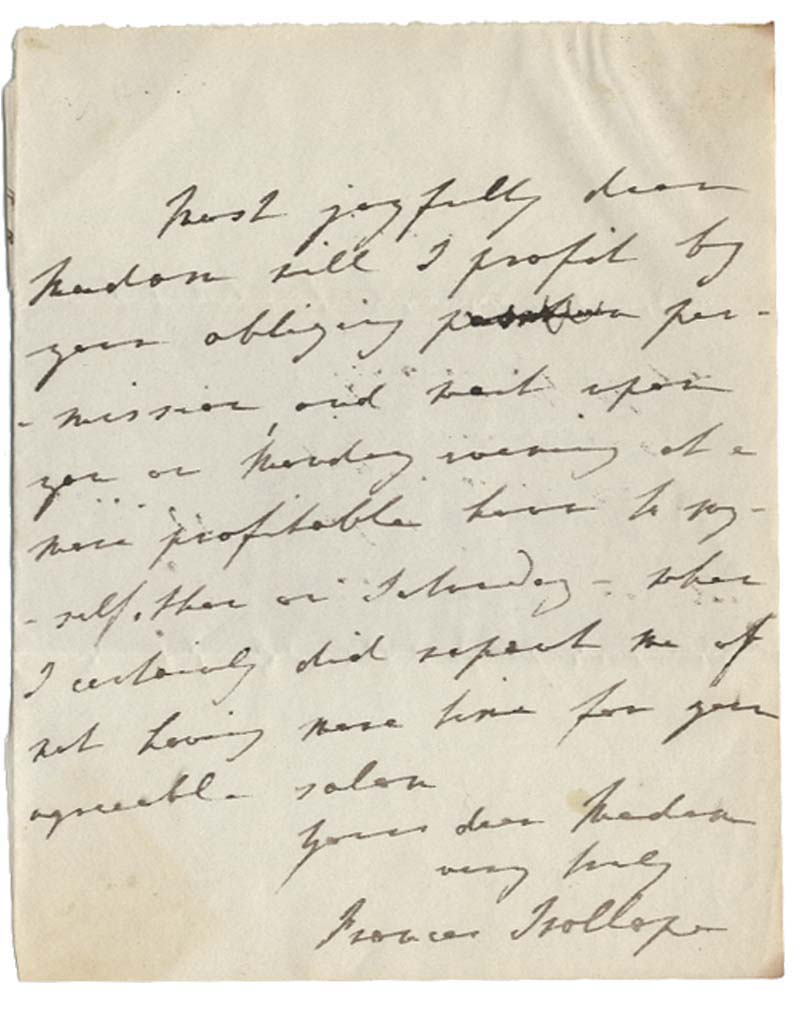 Most joyfully dear
Madam will I profit by
your obliging per-
-mission, and wait upon
you on Monday evening at a
more profitable hour to my-
-self, than on Saturday - when
I certainly did repent me of
not having more time for your
agreeable salon
Yours dear Madam
very truly
Frances Trollope